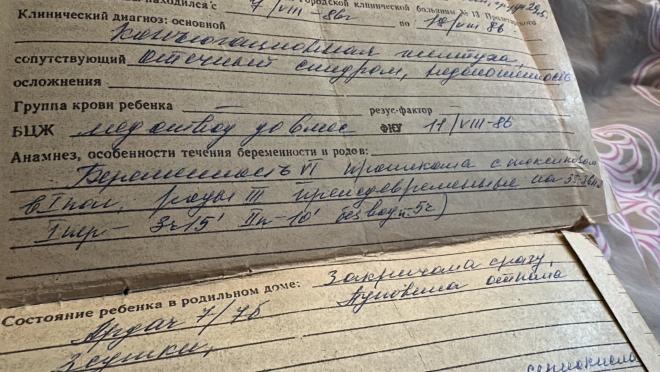 находился с 7/VIII-86г городской клинической больницы № 13
Клинический диагноз: основной по 18/VIII 86
Конъюгационная желтуха,
сопутствующий Отечный синдром, недоношенность
осложнения
Группа крови ребенка — резус-фактор —
БЦЖ медотвод до 6 мес ФКУ 11/VIII-86
Анамнез, особенности течения беременности и родов:
Беременность VI протекала с токсикозом
в I пол, роды III преждевременные на
I пер - 3ч15' IIп - 10' безвод п. 5ч)
Состояние ребенка в родильном доме: Закричала сразу,
Апгар 7/7б Пуповина отпала
3 сутки,